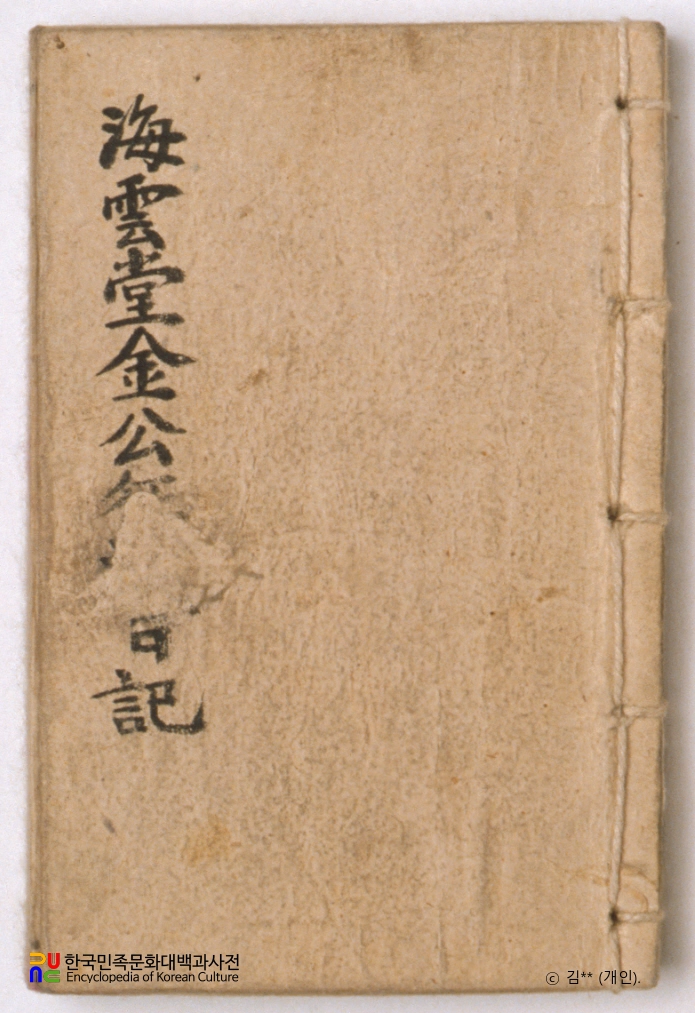 海雲堂金公
日記
한국민족문화대백과사전
Encyclopedia of Korean Culture
© 김** (개인).